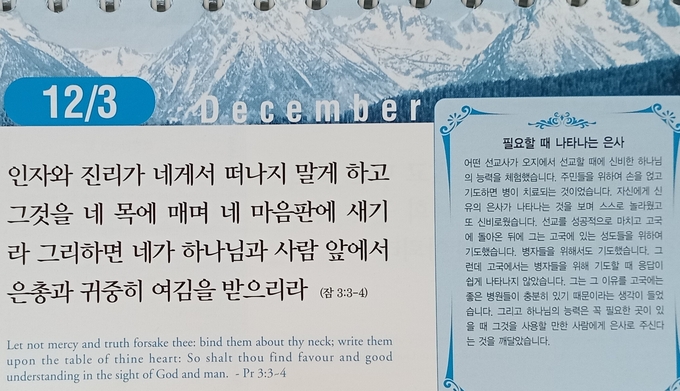 12/3
December
인자와 진리가 네게서 떠나지 말게 하고
그것을 네 목에 매며 네 마음판에 새기
라 그리하면 네가 하나님과 사람 앞에서
은총과 귀중히 여김을 받으리라 (잠 3:3-4)
Let not mercy and truth forsake thee: bind them about thy neck; write them
upon the table of thine heart: So shalt thou find favour and good
understanding in the sight of God and man. - Pr 3:3-4
필요할 때 나타나는 은사
어떤 선교사가 오지에서 선교할 때에 신비한 하나님
의 능력을 체험했습니다. 주민들을 위하여 손을 얹고
기도하면 병이 치료되는 것이었습니다. 자신에게 신
유의 은사가 나타나는 것을 보며 스스로 놀라웠고
또 신비로웠습니다. 선교를 성공적으로 마치고 고국
에 돌아온 뒤에 그는 고국에 있는 성도들을 위하여
기도했습니다. 병자들을 위해서도 기도했습니다. 그
런데 고국에서는 병자들을 위해 기도할 때 응답이
쉽게 나타나지 않았습니다. 그는 그 이유를 고국에는
좋은 병원들이 충분히 있기 때문이라는 생각이 들었
습니다. 그리고 하나님의 능력은 꼭 필요한 곳이 있
을 때 그것을 사용할 만한 사람에게 은사로 주신다
는 것을 깨달았습니다.